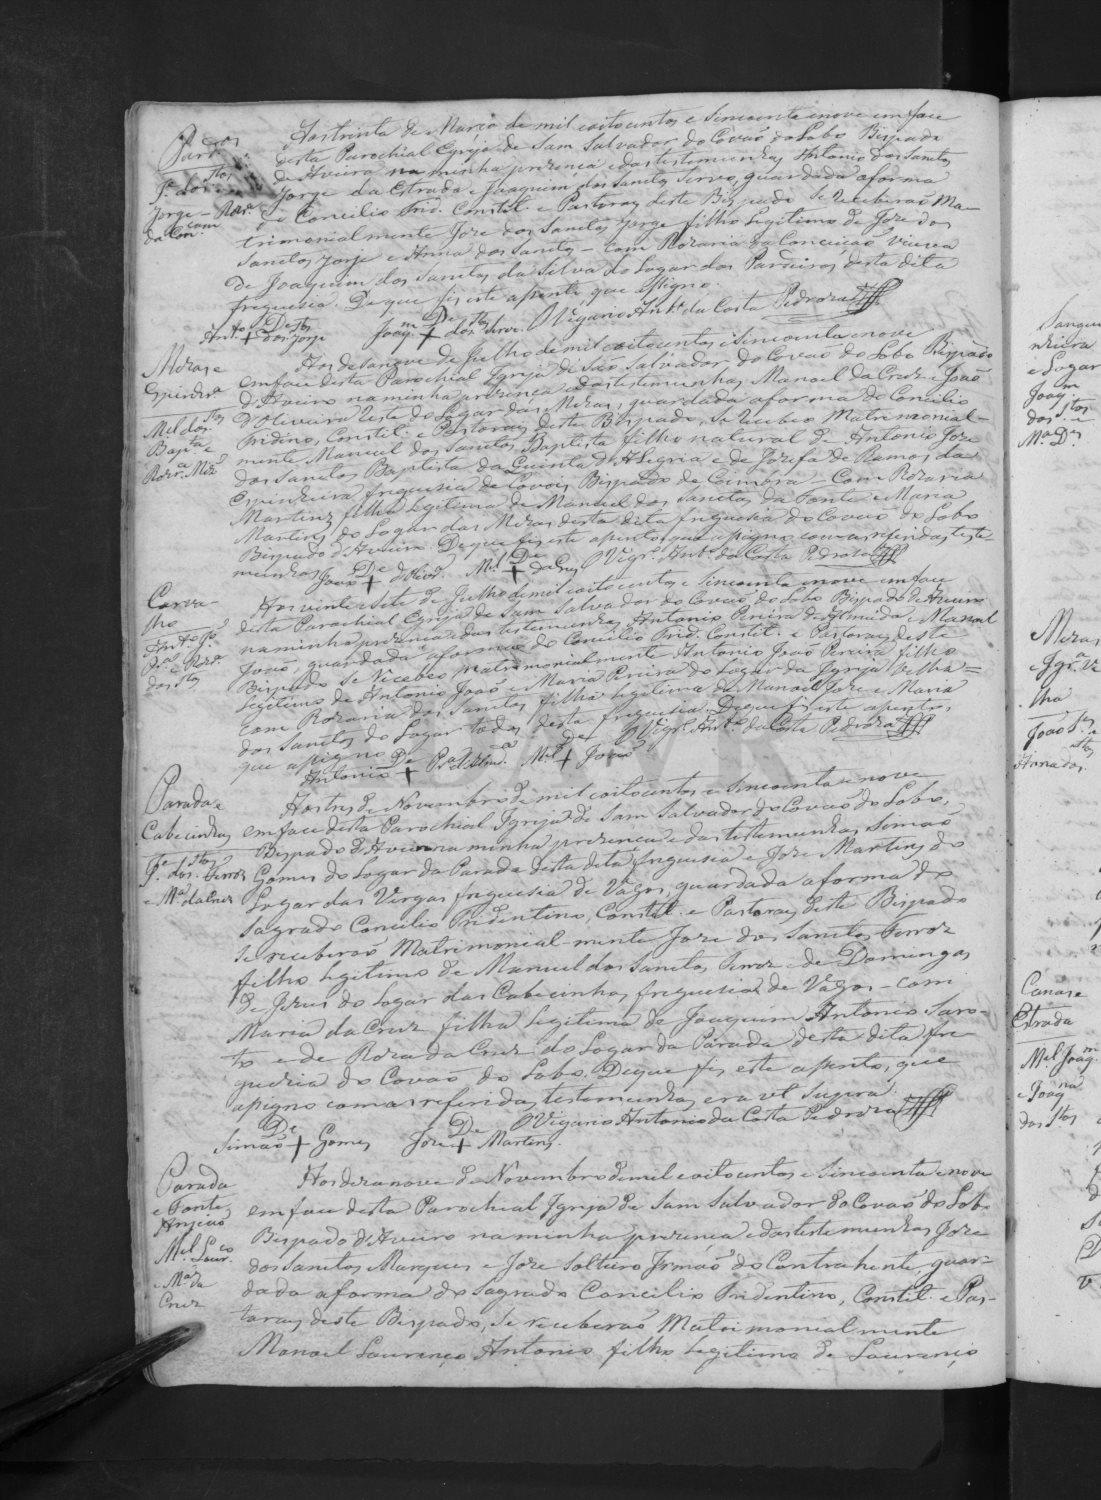 Aos trinta de Março de mil oitocentos e sincoenta e nove em face
desta Parochial Egreja de Sam Salvador do Covaõ do Lobo Bispado
de Aveiro na minha prezença e das testemunhas Antonio dos Santos
Jorge da Estrada e Joaquim dos Santos Servo, guardada a forma
do Concilio Trid. Constit. e Pastoraes deste Bispado Se Receberaõ Ma-
trimonialmente Joze dos Santos Jorge filho Legitimo de Joze dos
Santos Jorje e Anna dos Santos - com Rozaria da Conceicaõ Viuva
de Joaquim dos Santos da Silva do Logar dos desta dita
freguesia. De que fis este aSento que aSigno.
O Vigario Antº da Costa Pedroza
Antº De + dos Stos Jorje Joaqm De + dos Stos Servo
Jº dos Stos
Jorge - Rozr.
com
da Con.
Mezas e
Espinhrª
Mel dos Stos
Baptª e
Rozrª Mrz
Aos dezanove de Julho de mil oitocentos e Sincoenta e nove
em face desta Parochial Igreja de Saõ Salvador do Covaõ do Lobo Bispado
d'Aveiro na minha prezença e das testemunhas Manoel da Cruz e Joaõ
d'Oliveira Neste do Logar das Mezas, guardada a forma do Concilio
Tridino, Constit. e Pastoraes deste Bispado, Se Recebeo Matrimonial-
mente Manuel dos Santos Baptista filho natural de Antonio Joze
dos Santos Baptista da Quinta d'Alegria e de Jozefa de Ramos da
Espinheira freguesia de Covoẽs Bispado de Coimbra - Com Rozaria
Martins filha Legitima de Manuel dos Santos da Fonte e Maria
Martins do Logar das Mezas desta dita freguesia do Covaõ do Lobo
Bispado d'Aveiro. De que fis este aSento que aSigno com as referidas teste-
munhas Joaõ De + d'Olivrª Mel De + da Cruz O Vigrº Antº da Costa Pedroza
Carva-
lho
Antº Jº
Prª e Rozrª
dos Stos
Aos vinte e Sete de Julho de mil oitocentos e Sincoenta e nove em face
desta Parochial Egreja de Sam Salvador do Covaõ do Lobo Bispado de Aveiro
na minha prezença e das testemunhas Antonio Pereira de Almeida e Manoel
Joaõ, guardada a forma do Concilio Trid. Constit. e Pastoraes deste
Bispado Se Recebeo Matrimonialmente Antonio Joaõ Pereira filho
Legitimo de Antonio Joaõ e Maria Pereira do Logar da Igreja Velha =
com Rozaria dos Santos filha legitima de Manoel Joze e Maria
dos Santos do Logar todos desta freguesia. De que fis este aSento,
que aSigno O Vigrº Antº da Costa Pedroza
Antonio De + Prª d'Almª Mel De + Joaõ
Parada e
Cabecinhas
Jº dos Stos Ferroz
e Mª da Cruz
Aos tres de Novembro de mil oitocentos e Sincoenta e nove
em face desta Parochial Igreja de Sam Salvador do Covaõ do Lobo,
Bispado d'Aveiro na minha prezenca e das testemunhas Simaõ
Gomes do Logar da Parada desta dita freguesia e Joze Martins do
Logar das Vergas freguesia de Vagos, guardada a forma do
Sagrado Concilio Tridentino, Constit. e Pastoraes deste Bispado
Se receberaõ Matrimonial-mente Joze dos Santos Ferroz
filho legitimo de Manuel dos Santos Ferroz e de Domingas
de Jezus do Logar das Cabecinhas, freguesia de Vagos - com
Maria da Cruz filha Legitima de Joaquim Antonio Saro-
to e de Roza da Cruz do Logar da Parada desta dita fre
guezia do Covaõ do Lobo. De que fis este aSento, que
aSigno com as referidas testemunhas era ut Supra.
O Vigario Antonio da Costa Pedroza
Simaõ De + Gomes Joze De + Martins.
Parada
e Fonte
Anjeaõ
Mel Lourço
e Mª da
Cruz
Aos dezanove de Novembro de mil e oitocentos e Sincoenta e nove
em face desta Parochial Igreja de Sam Salvador do Covaõ do Lobo
Bispado d'Aveiro na minha prezença e das testemunhas Joze
dos Santos Marques e Joze Solteiro Irmaõ do Contrahente, guar-
dada a forma do Sagrado Concilio Tridentino, Constit. e Pas-
toraes deste Bispado, Se receberaõ Matrimonialmente
Manoel Lourenço Antonio filho Legitimo de Lourenço
e Logar
Joaqm
dos Stos e
Mezas
e Igrª Ve
lha
Canas e
Estrada
Mel Joaqm
e Joaqna
dos Stos